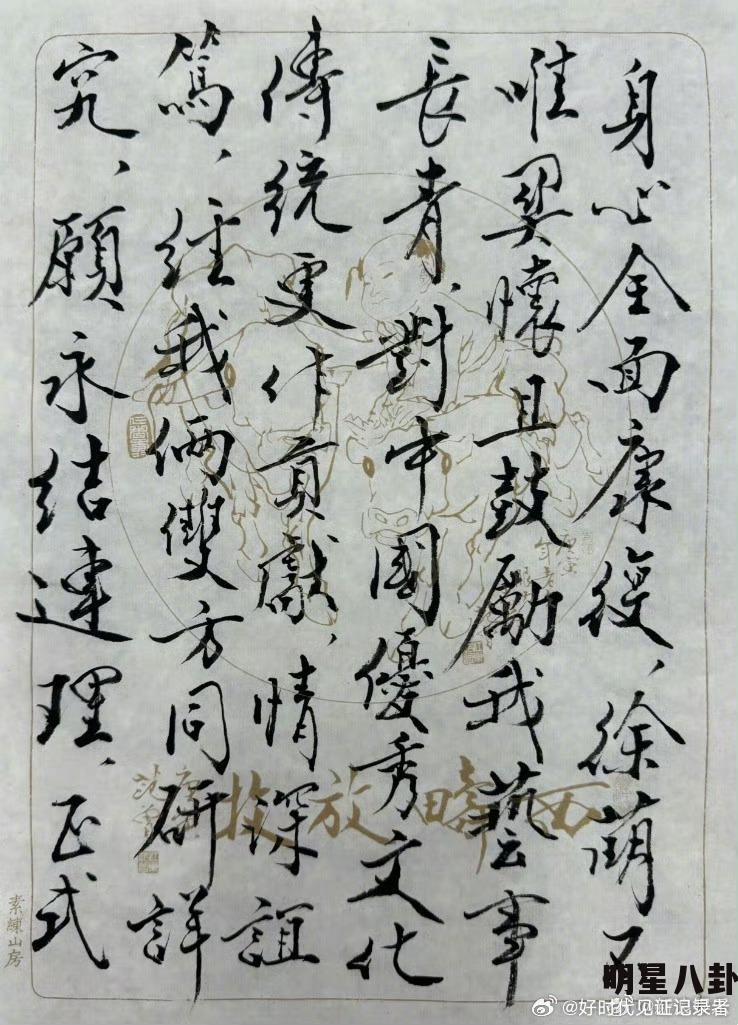 身心全面康復、徐萌不
唯契懷且鼓勵我藝事
長青、對中國優秀文化
傳統更作貢獻、情深誼
篤、經我倆雙方同研詳
究、願永結連理、正式
西疇放牧
素練山房
明星八卦
@好时代见证记录者